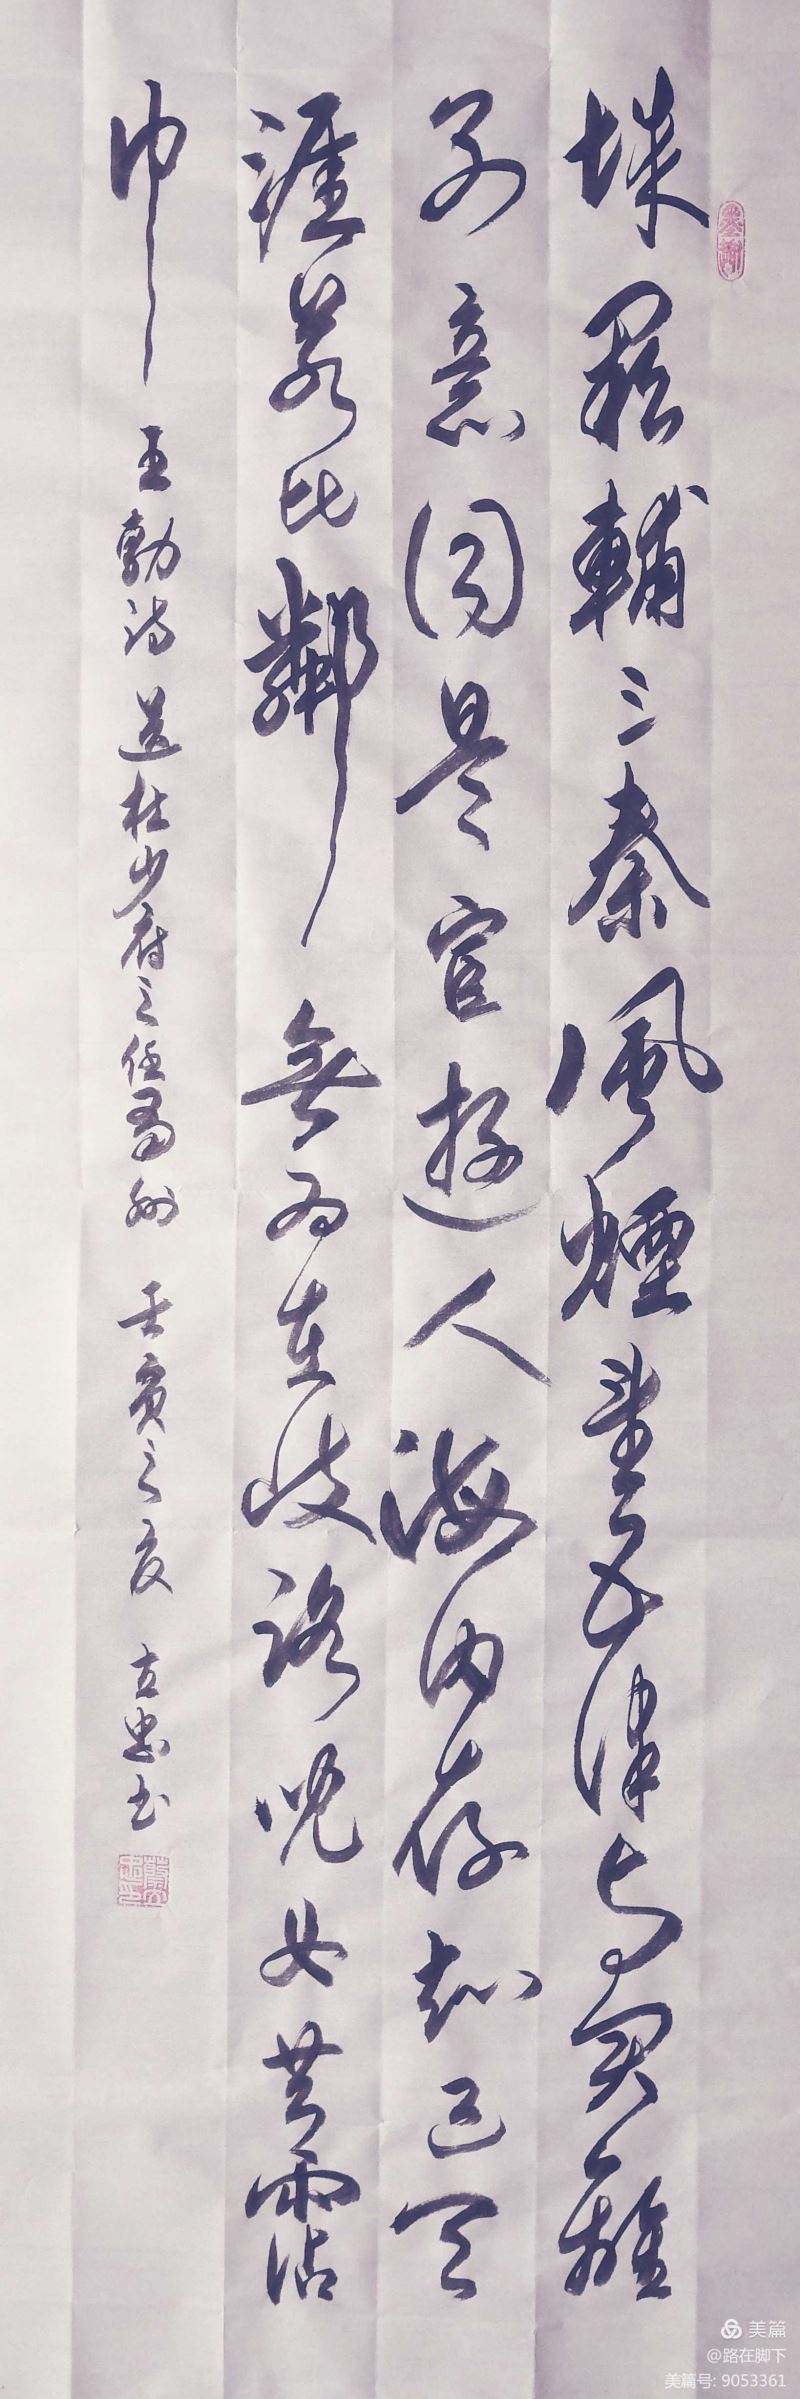 城闕輔三秦風煙望五津与君離
別意同是宦遊人海內存知己天
涯若比鄰無為在歧路兒女共霑
巾 王勃詩 送杜少府之任蜀州 壬寅之夏 忠书
美篇
@路在脚下
美篇号: 9053361